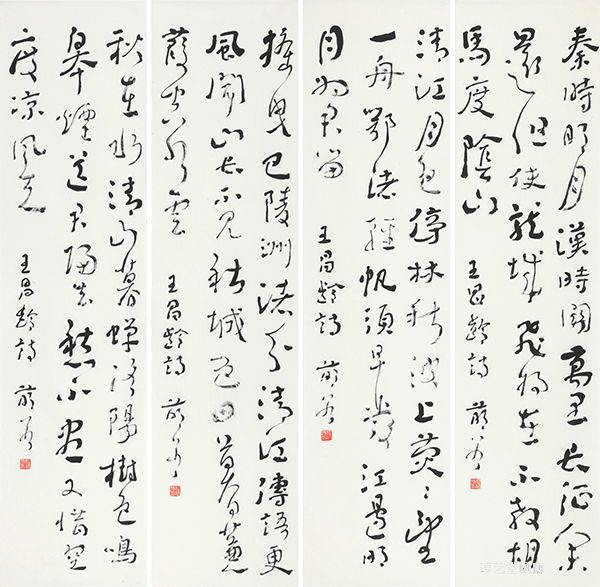 秦時明月漢時關萬里长征人未
還但使龍城飛將在不教胡
馬度陰山
王昌齡詩
清江月色傍林秋波上熒〻望
一舟鄂渚輕帆須早發江邊明
月為君留
王昌齡詩
搖曳巴陵洲渚分清江傳語便
風聞山长不見秋城色日暮蒹
葭空水雲
王昌齡詩
秋在水清山暮蟬洛陽樹色鳴
皋煙送君歸去愁不盡又惜空
度凉風天
王昌齡詩